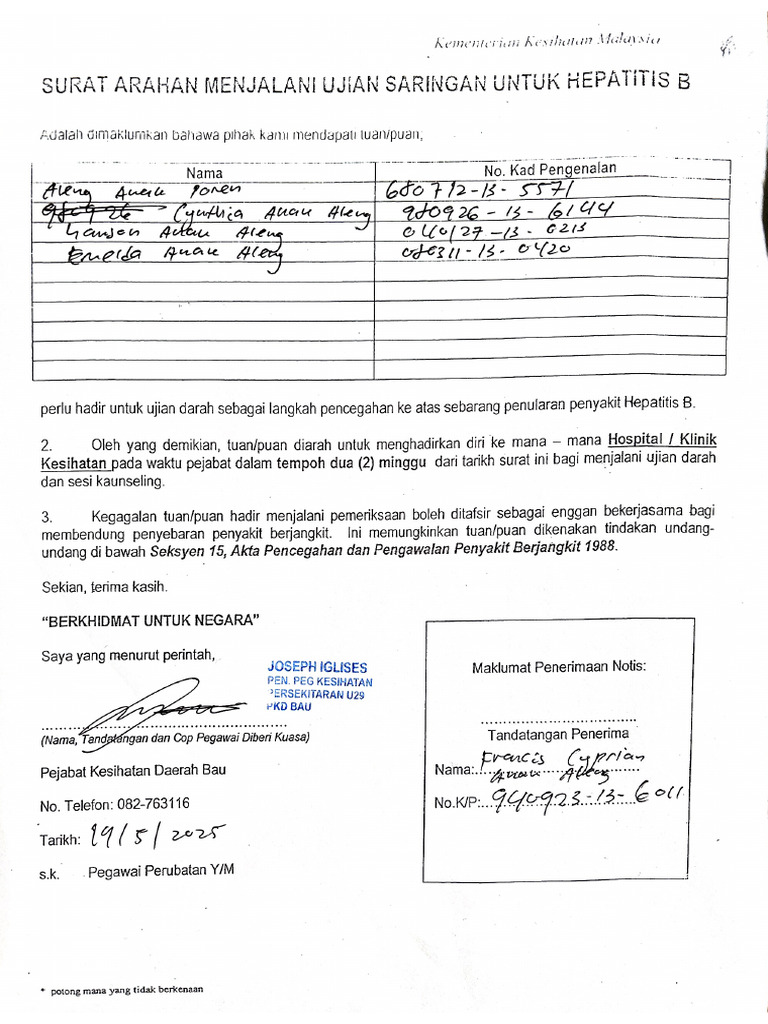 Kementerian Kesihatan Malaysia
SURAT ARAHAN MENJALANI UJIAN SARINGAN UNTUK HEPATITIS B
Adalah dimaklumkan bahawa pihak kami mendapati tuan/puan;
Nama No. Kad Pengenalan
Aleng Anak Poren 680712-13-5571
980926 Cynthia Anak Aleng 980926-13-6144
Anak Aleng 040127-13-0213
Anak Aleng 080311-13-0420
perlu hadir untuk ujian darah sebagai langkah pencegahan ke atas sebarang penularan penyakit Hepatitis B.
2. Oleh yang demikian, tuan/puan diarah untuk menghadirkan diri ke mana – mana Hospital / Klinik
Kesihatan pada waktu pejabat dalam tempoh dua (2) minggu dari tarikh surat ini bagi menjalani ujian darah
dan sesi kaunseling.
3. Kegagalan tuan/puan hadir menjalani pemeriksaan boleh ditafsir sebagai enggan bekerjasama bagi
membendung penyebaran penyakit berjangkit. Ini memungkinkan tuan/puan dikenakan tindakan undang-
undang di bawah Seksyen 15, Akta Pencegahan dan Pengawalan Penyakit Berjangkit 1988.
Sekian, terima kasih.
"BERKHIDMAT UNTUK NEGARA"
Saya yang menurut perintah,
JOSEPH IGLISES
PEN. PEG KESIHATAN
PERSEKITARAN U29
PKD BAU
(Nama, Tandatangan dan Cop Pegawai Diberi Kuasa)
Pejabat Kesihatan Daerah Bau
No. Telefon: 082-763116
Tarikh: 19/5/2025
s.k. Pegawai Perubatan Y/M
Maklumat Penerimaan Notis:
Tandatangan Penerima
Nama: Francis Cyprian
Anak Aleng
No.K/P: 940923-13-6011
* potong mana yang tidak berkenaan